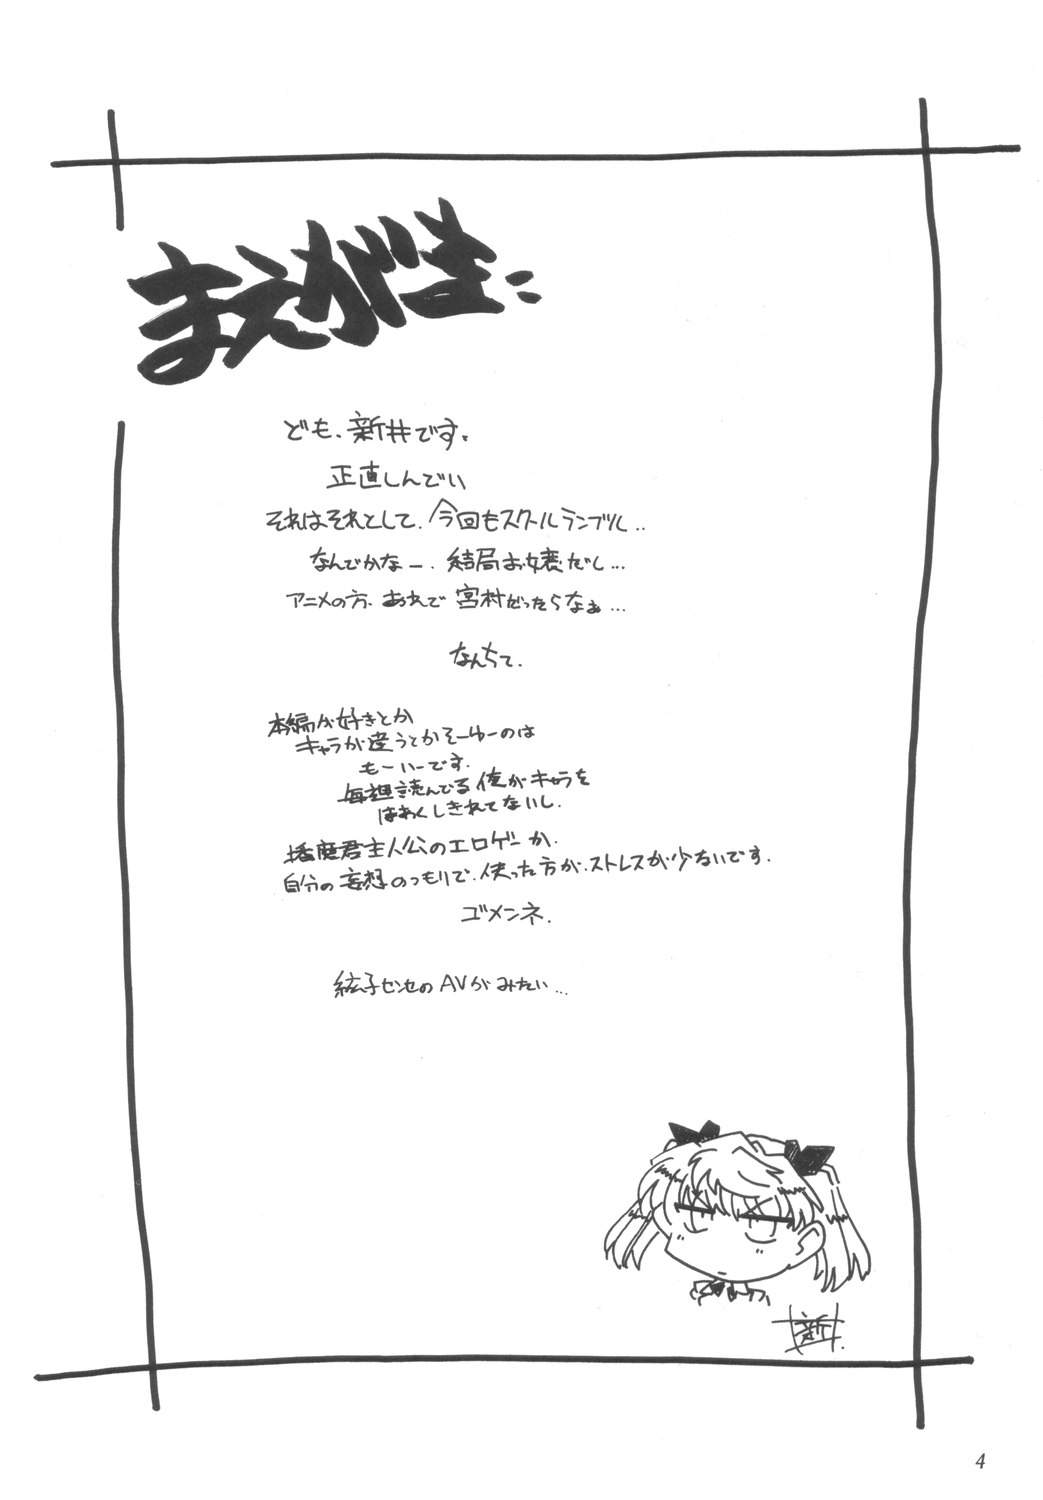 まえがき
ども、新井です。
正直しんでい
それはそれとして、今回もスクールランブル..
なんでかなー、結局お嬢だし...
アニメの方、あれで宮村だったらなぁ...
なんちて.
本編が好きとか
キャラが違うとかそーゆーのは
もーいーです.
毎週読んでる俺がキャラを
はあくしきれてないし.
播磨君主人公のエロゲーか、
自分の妄想のつもりで、使った方が、ストレスが少ないです.
ゴメンネ.
絃子センセのAVがみたい...
新井.
4